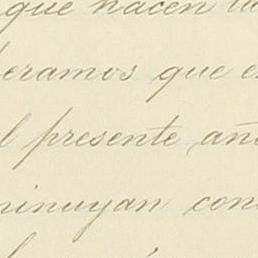 que hacen la
eramos que e
l presente año
minuyan con